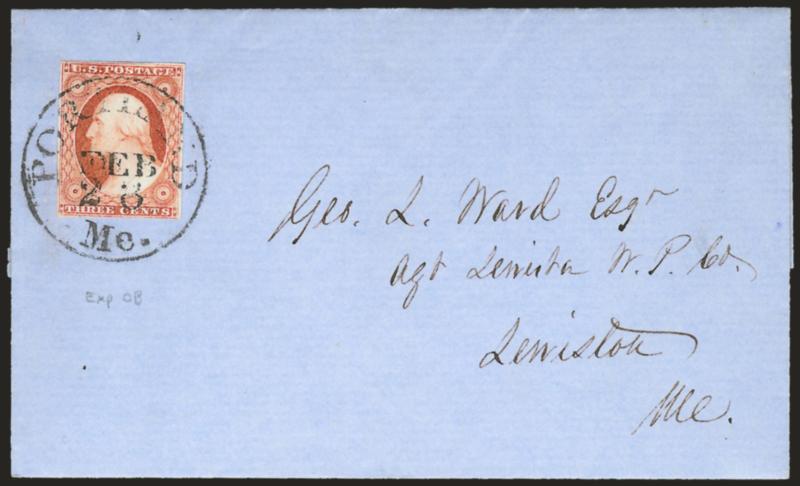 U.S. POSTAGE
PORTLAND
FEB
28
Me.
THREE CENTS
Exp OB
Geo. L. Ward Esqr
agt Lewiston W. P. Co.
Lewiston
Me.